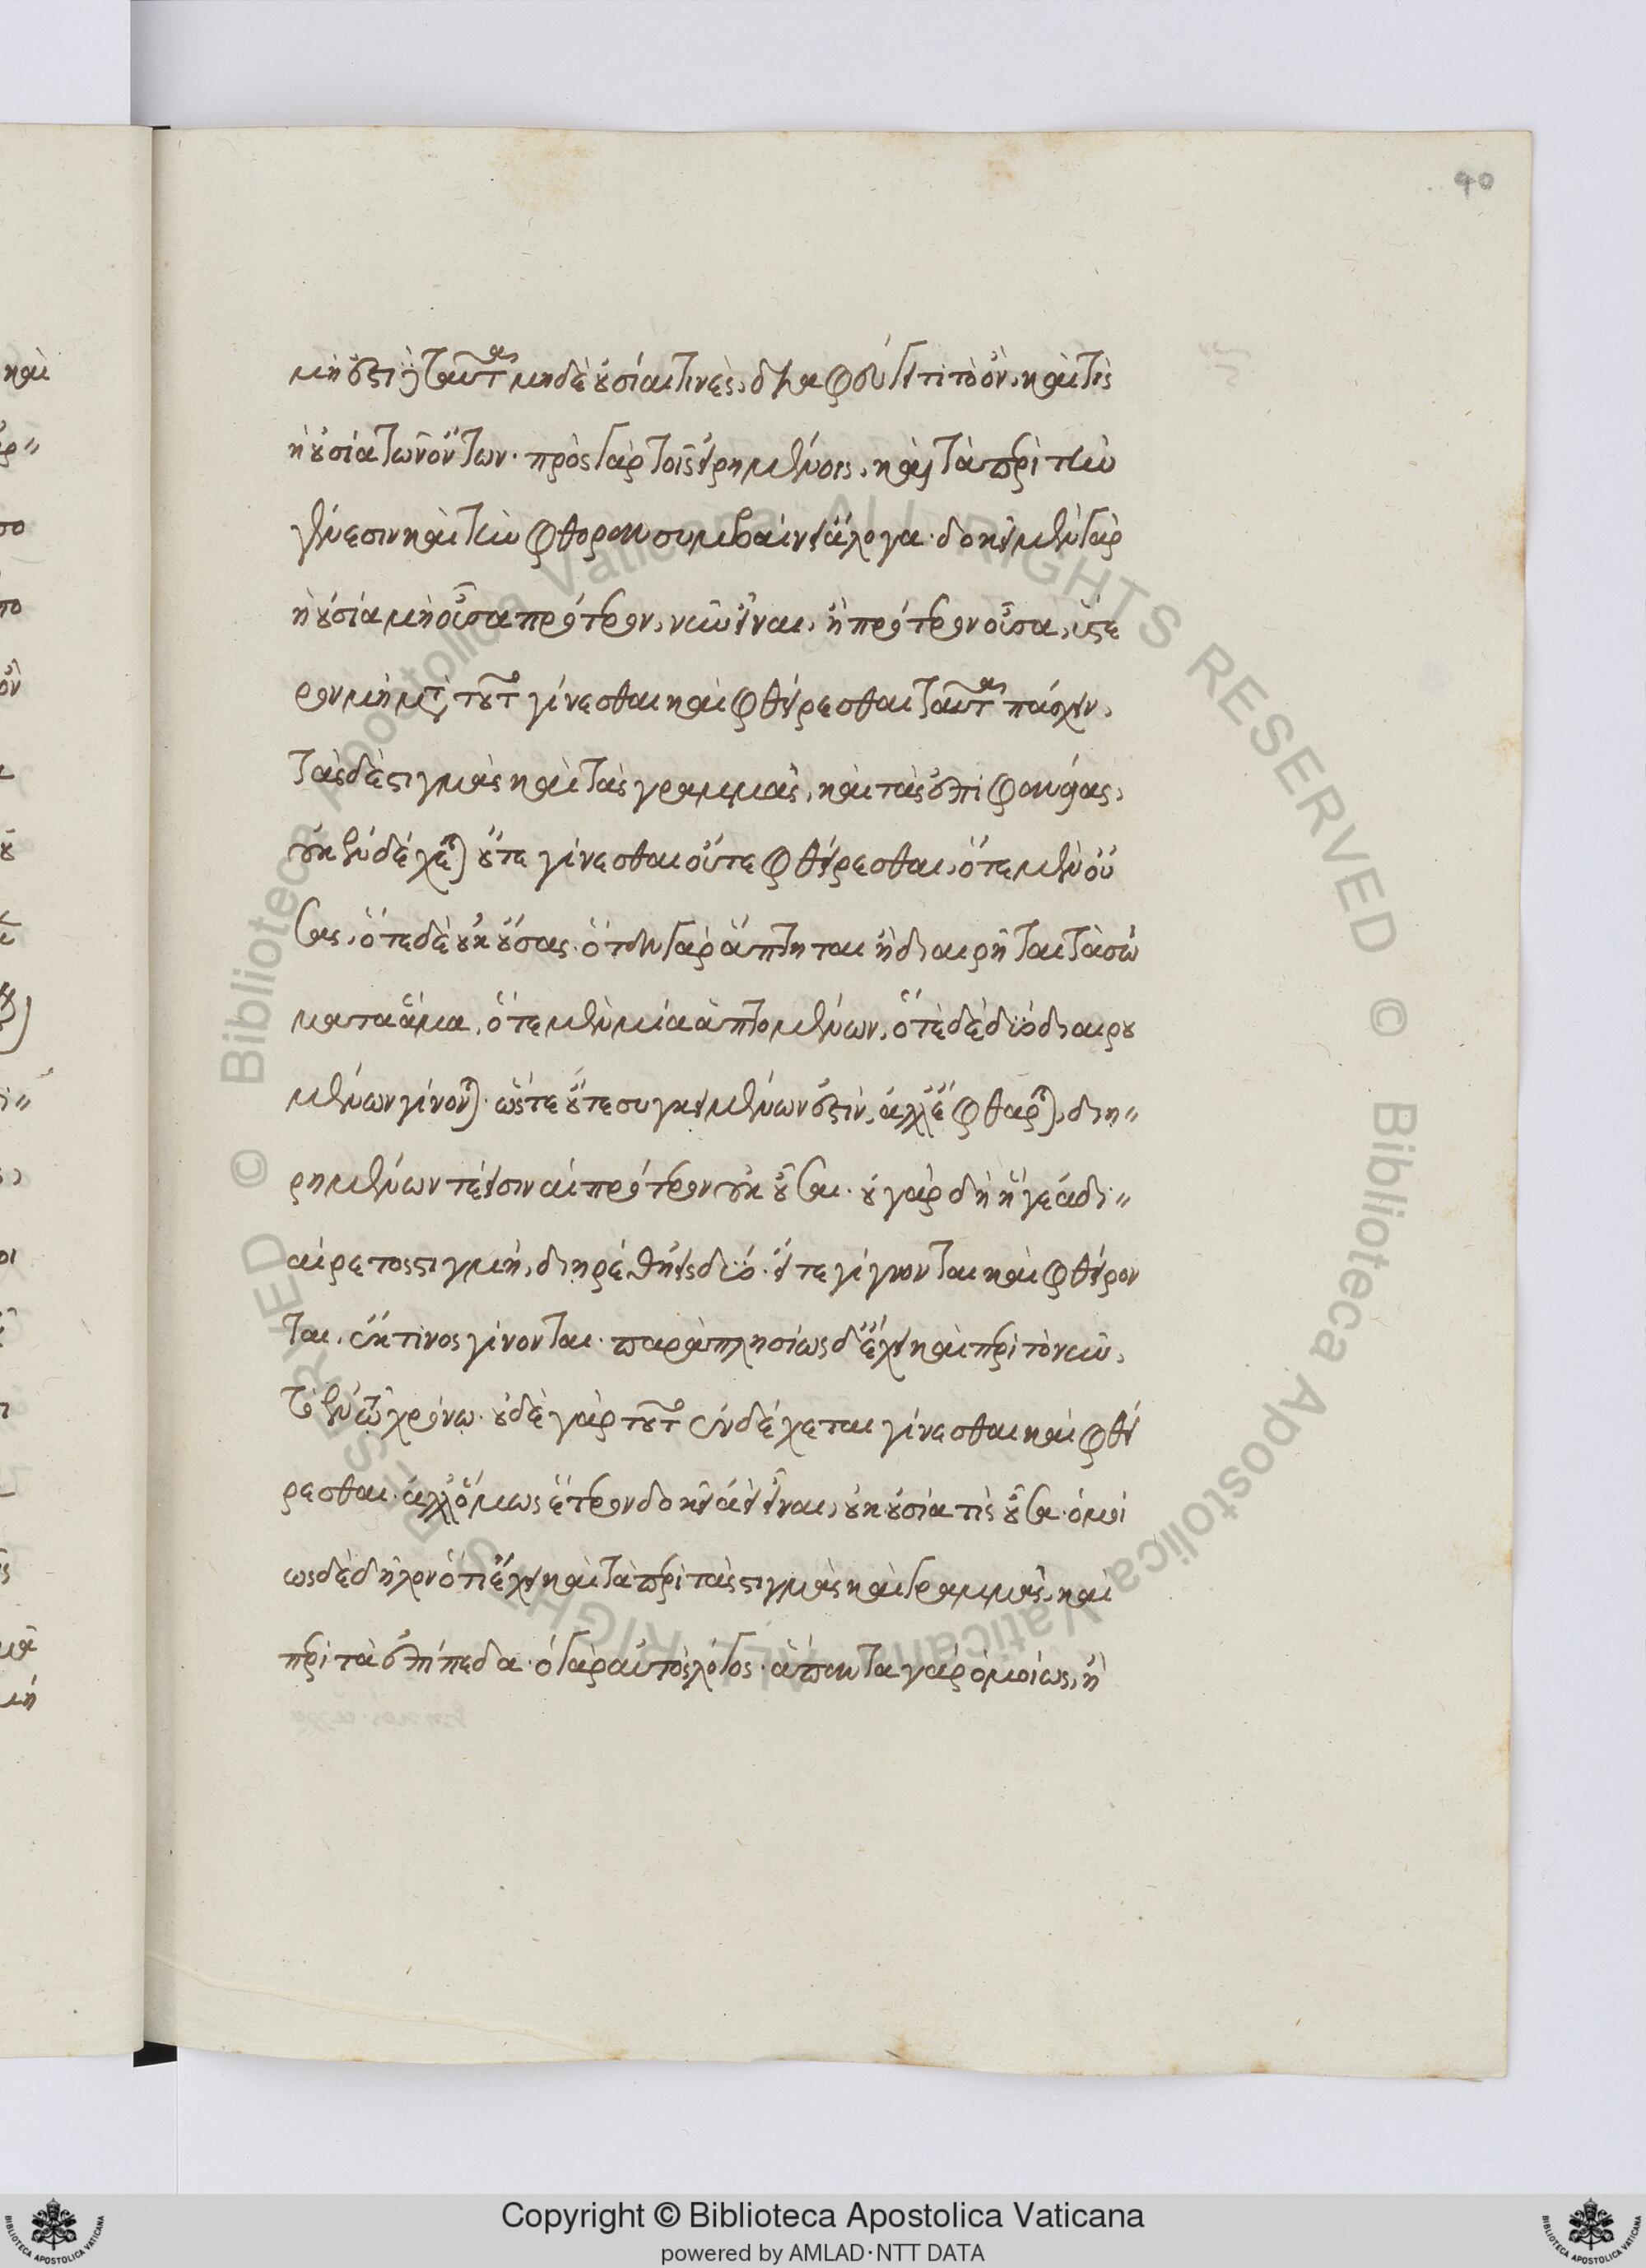 μὴ ἔστι δὲ ταῦτα μηδὲ οὐσίαι τινὲς, διαφεύγει τί τὸ ὂν, καὶ τίς
ἡ οὐσία τῶν ὄντων· πρὸς γὰρ τοῖς εἰρημένοις, καὶ τὰ περὶ τὴν
γένεσιν καὶ τὴν φθορὰν συμβαίνει ἄλογα· δοκεῖ μὲν γὰρ
ἡ οὐσία μὴ οὖσα πρότερον, νῦν εἶναι, ἢ πρότερον οὖσα, ὕστε
ρον μὴ μετὰ τοῦτο γίνεσθαι καὶ φθείρεσθαι ταῦτα πάσχειν,
τὰς δὲ στιγμὰς καὶ τὰς γραμμὰς, καὶ τὰς ἐπιφανείας,
οὐκ ἐνδέχεται οὔτε γίνεσθαι οὔτε φθείρεσθαι, ὁτὲ μὲν οὔ
σας, ὁτὲ δὲ οὐκ οὔσας· ὅταν γὰρ ἅπτηται ἢ διαιρῆται τὰ σώ
ματα ἅμα, ὁτὲ μὲν μία ἁπτομένων, ὁτὲ δὲ δύο διαιρου
μένων γίνονται· ὥστε οὔτε συγκειμένων ἔστιν, ἀλλ' ἔφθαρται, διη-
ρημένων τε εἰσιν αἱ πρότερον οὐκ οὖσαι· οὐ γὰρ δὴ ἥ γε ἀδι-
αίρετος στιγμὴ, διηρέθη εἰς δύο· εἴ τε γίγνονται καὶ φθείρον
ται, ἐκ τίνος γίνονται· παραπλησίως δ' ἔχει καὶ περὶ τὸ νῦν,
τὸ ἐν τῷ χρόνῳ· οὐδὲ γὰρ τοῦτο ἐνδέχεται γίνεσθαι καὶ φθεί
ρεσθαι· ἀλλ' ὅμως ἕτερον δοκεῖ ἀεὶ εἶναι, οὐκ οὐσία τις οὖσα· ὁμοί
ως δὲ δῆλον ὅτι ἔχει καὶ τὰ περὶ τὰς στιγμὰς καὶ γραμμὰς, καὶ
περὶ τὰ ἐπίπεδα· ὁ γὰρ αὐτὸς λόγος· ἅπαντα γὰρ ὁμοίως, ἢ
90
© Biblioteca Apostolica Vaticana ALL RIGHTS RESERVED © Biblioteca Apostolica Vaticana ALL RIGHTS RESERVED
Copyright © Biblioteca Apostolica Vaticana
powered by AMLAD·NTT DATA